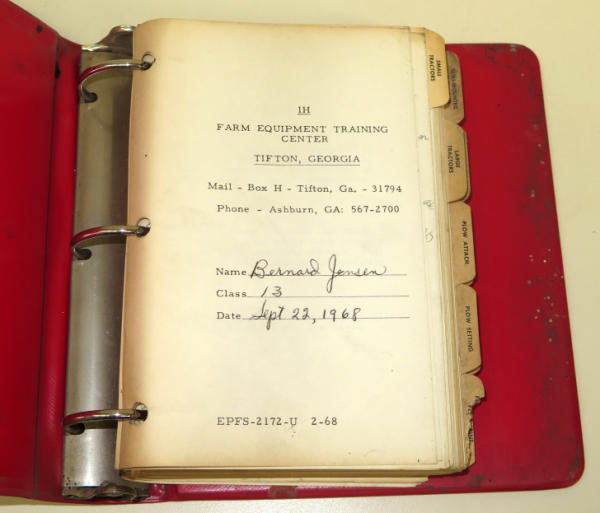 IH
FARM EQUIPMENT TRAINING
CENTER
TIFTON, GEORGIA
Mail - Box H - Tifton, Ga. - 31794
Phone - Ashburn, GA: 567-2700
Name Bernard Jensen
Class 13
Date Sept 22, 1968
EPFS-2172-U 2-68
SMALL
TRACTORS
LARGE
TRACTORS
PLOW ATTACH
PLOW SETTING